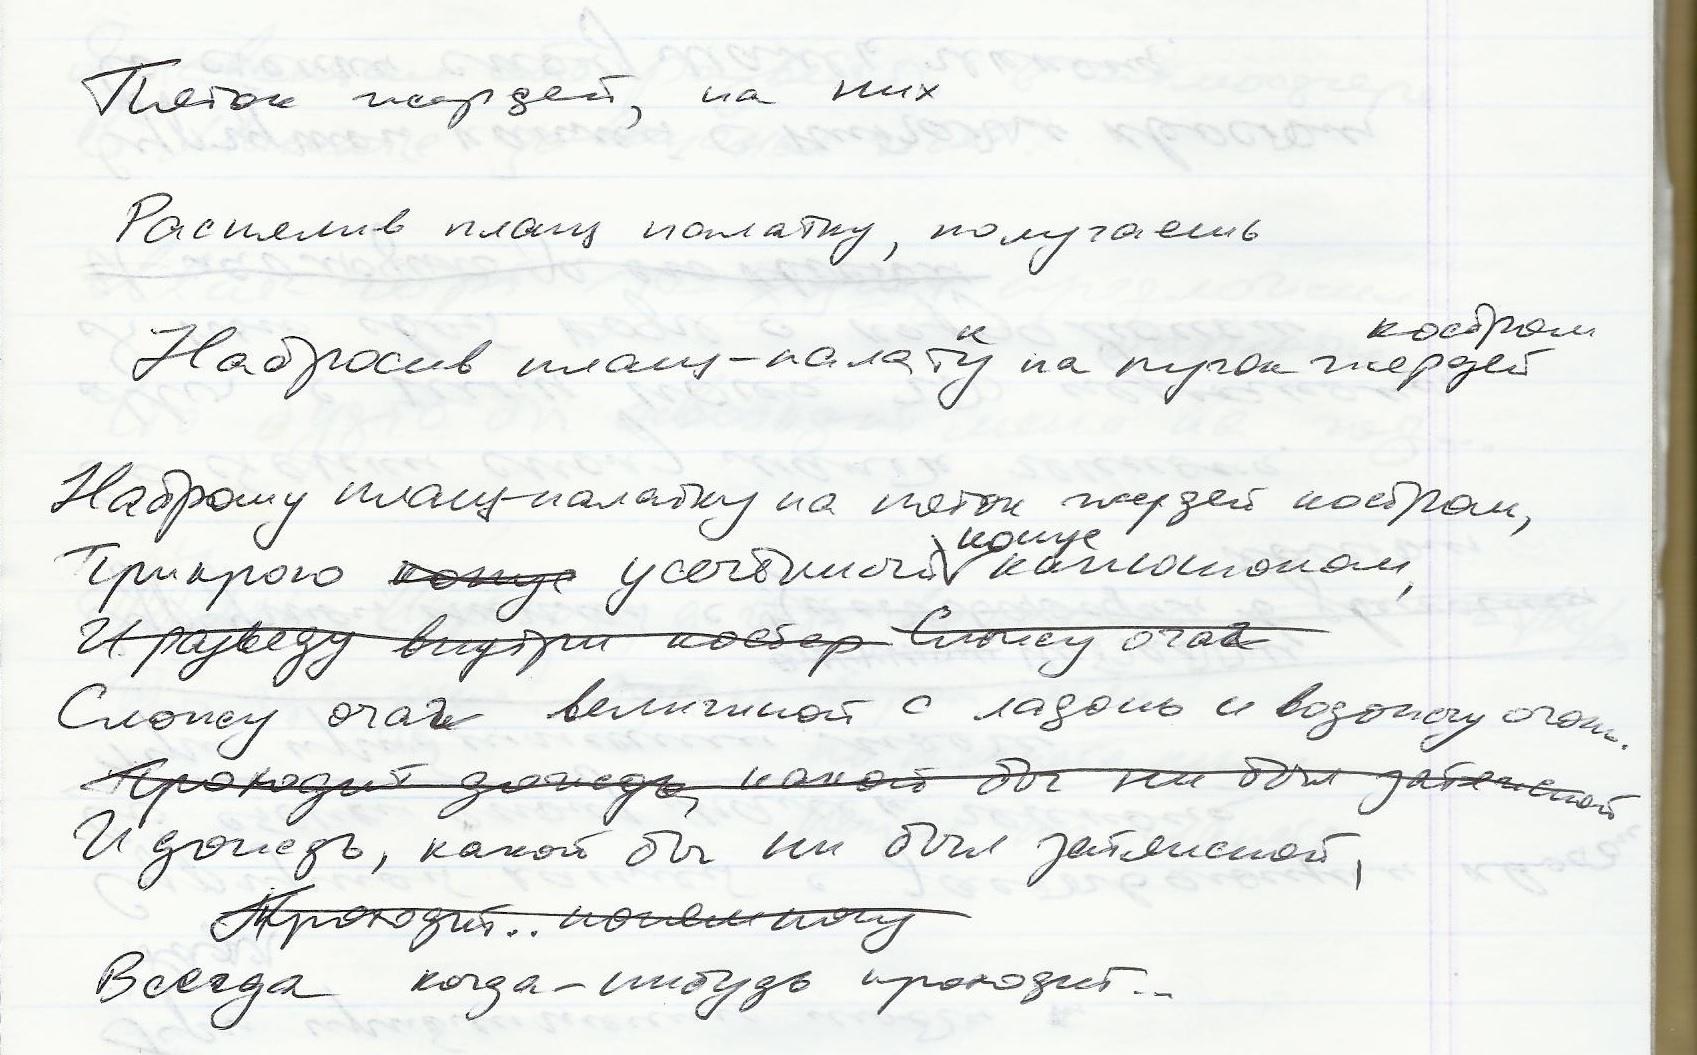 Пяток жердей, на них
Распялив плащ палатку, получаешь
костром
Набросив плащ-палатку на пучок жердей
Наброшу плащ-палатку на пяток жердей костром,
конус
Прикрою конус усечённый капюшоном,
И разведу внутри костер Сложу очаг
Сложу очаг величиной с ладонь и возожгу огонь.
Проходит дождь, какой бы ни был затяжной
И дождь, какой бы ни был затяжной,
Проходит.. понемногу
Всегда когда-нибудь проходит...